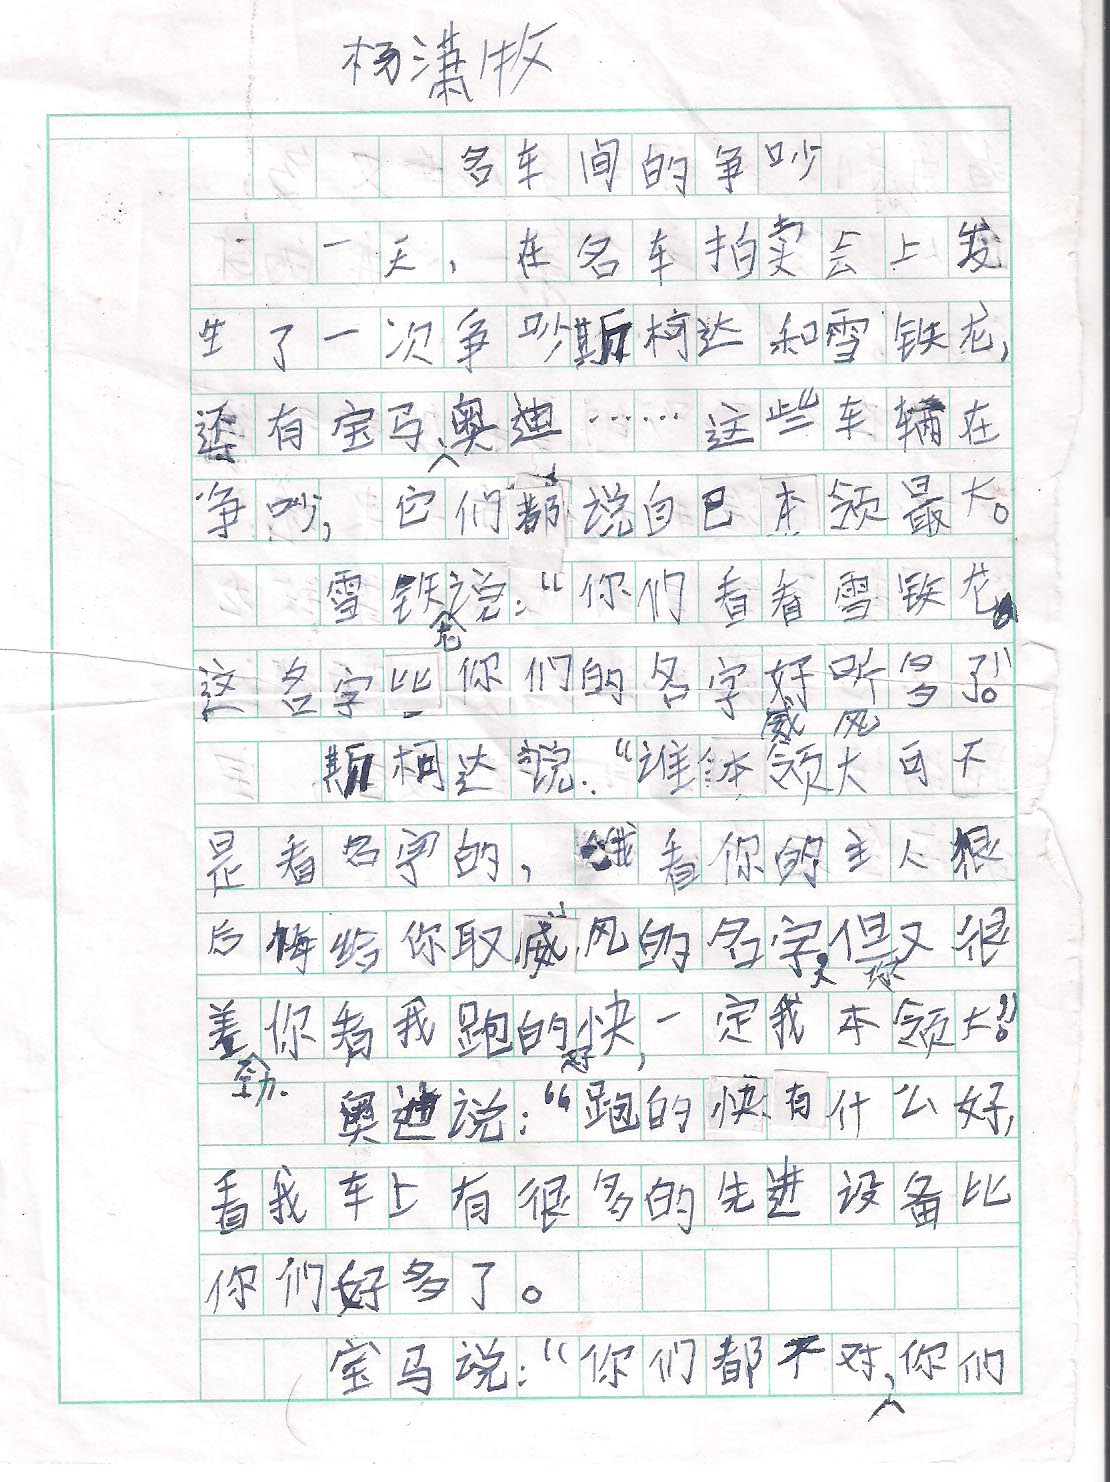 杨潇牧
名车间的争吵
一天，在名车拍卖会上发
生了一次争吵斯柯达和雪铁龙，
还有宝马、奥迪……这些车辆在
争吵，它们都说自已本领最大。
雪铁龙说：“你们看看雪铁龙
这名字比你们的名字好听多了。”
威风
斯柯达说：“谁本领大可不
是看名字的，我看你的主人很
后悔给你取威风的名字，但你又很
差劲.你看我跑的好快，一定我本领大。”
奥迪说：“跑的快有什么好，
看我车上有很多的先进设备比
你们好多了。
宝马说：“你们都不对，你们